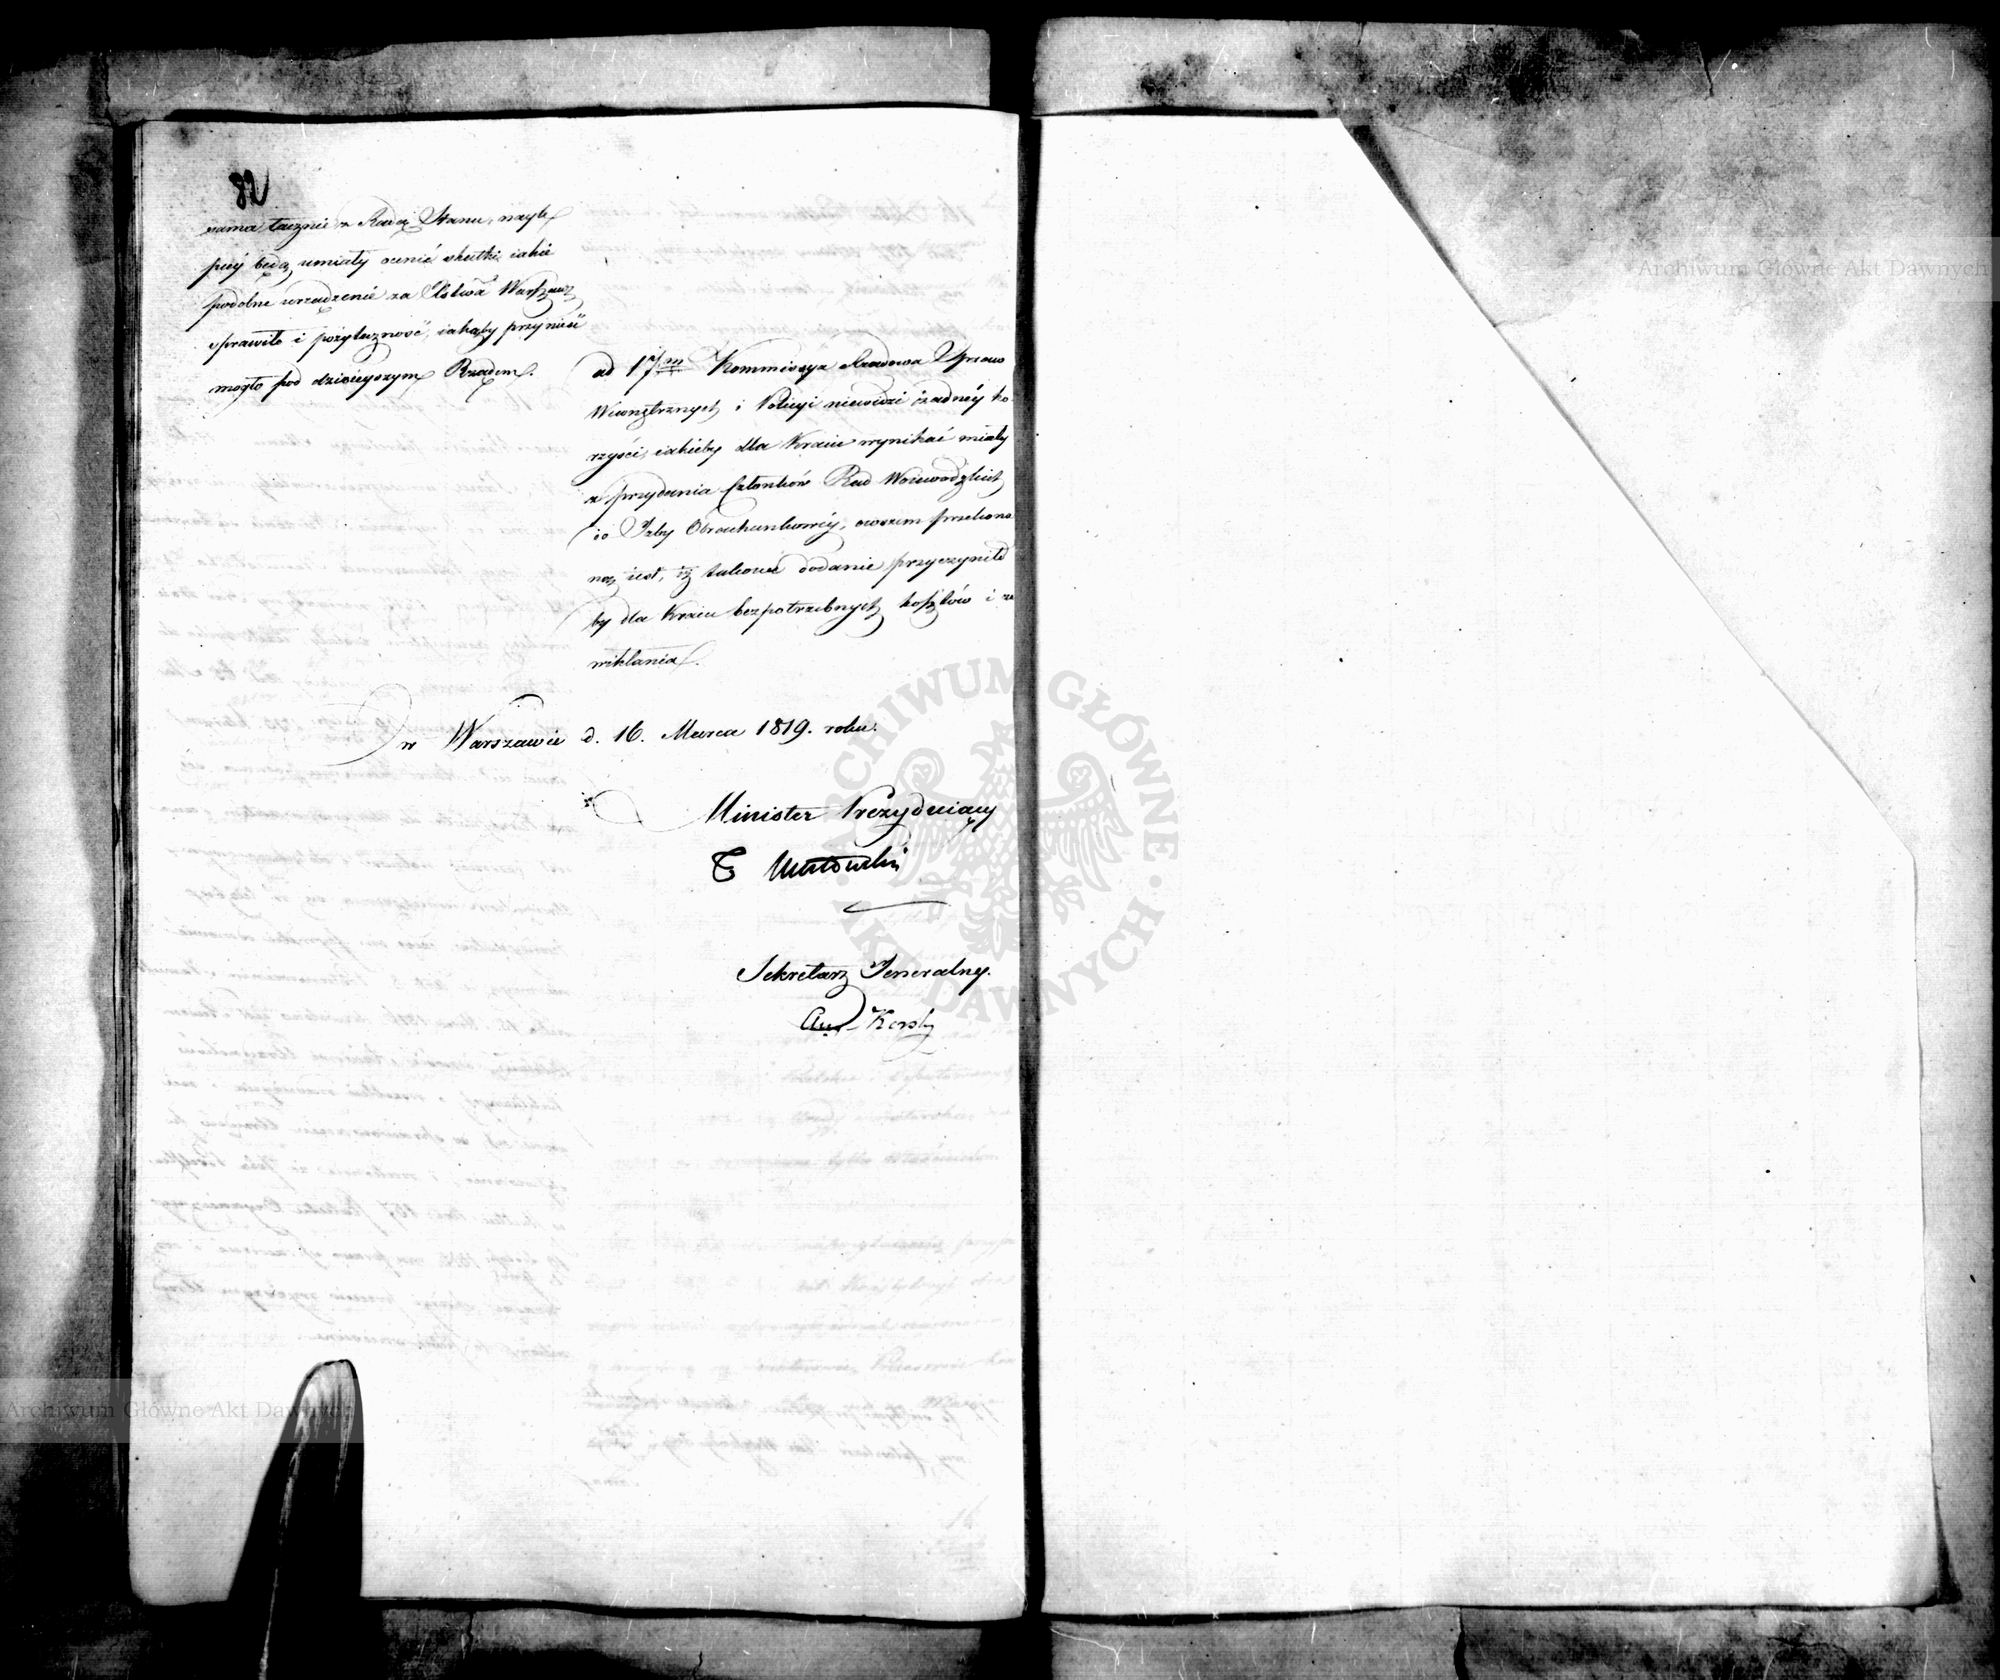 82
sama łącznie z Radą Stanu, nayle
piéy będą umiały ocenić skutki iakie
podobne urządzenie za Xstwa Warszaw:
sprawiło i pożyteczność, iakąby przynieść
mogło pod dzisieyszym Rządem.
ad 17m Kommissya Rządowa Spraw
Wewnętrznych i Policyi niewidzi żadnéy ko-
rzyści, iakieby dla Kraiu wynikać miały
z przydania Członków Rad Woiewódzkich
do Izby Obrachunkowéy, owszem przekona
ną iest, iż takowe dodanie przyczyniło
by dla Kraiu bezpotrzebnych kosztów i za
wikłania.
w Warszawie d. 16. Marca 1819. roku.
Minister Prezyduiący
T Mostowski
Sekretarz Jeneralny.
Aug Karski
Archiwum Główne Akt Dawnych
Archiwum Główne Akt Dawnych
ARCHIWUM GŁÓWNE AKT DAWNYCH